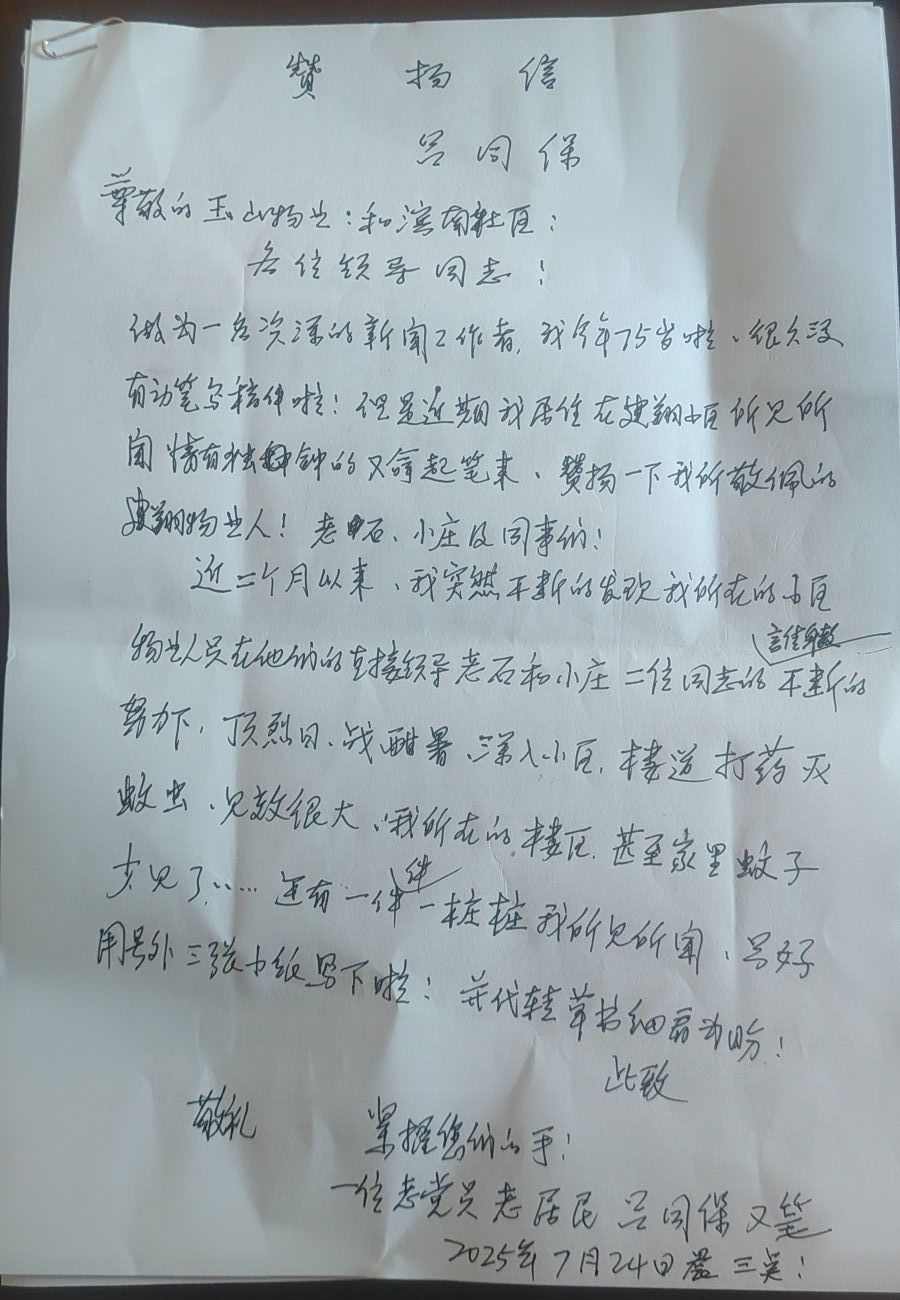 赞扬信
吕同保
尊敬的玉山物业:和滨南社区:
各位领导同志!
做为一名资深的新闻工作者,我今年75岁啦、很久没
有动笔写稿件啦!但是近期我居住在建翔小区所见所
闻情有独钟的又拿起笔来、赞扬一下我所敬佩的
建翔物业人!老石、小庄及同事们!
近二个月以来、我突然不断的发现我所在的小区
言传身教
物业人员在他们的直接领导老石和小庄二位同志的不断的
努力下,顶烈日、战酣暑、深入小区,楼道打药灭
蚊虫、见效很大、我所在的楼区,甚至家里蚊子
少见了……还有一件件一桩桩我所见所闻、只好
用号外三张小纸写下啦!并代转草书细看为盼!
此致
敬礼
紧握您们的手!
一位老党员老居民吕同保又笔
2025年7月24日晨三点!